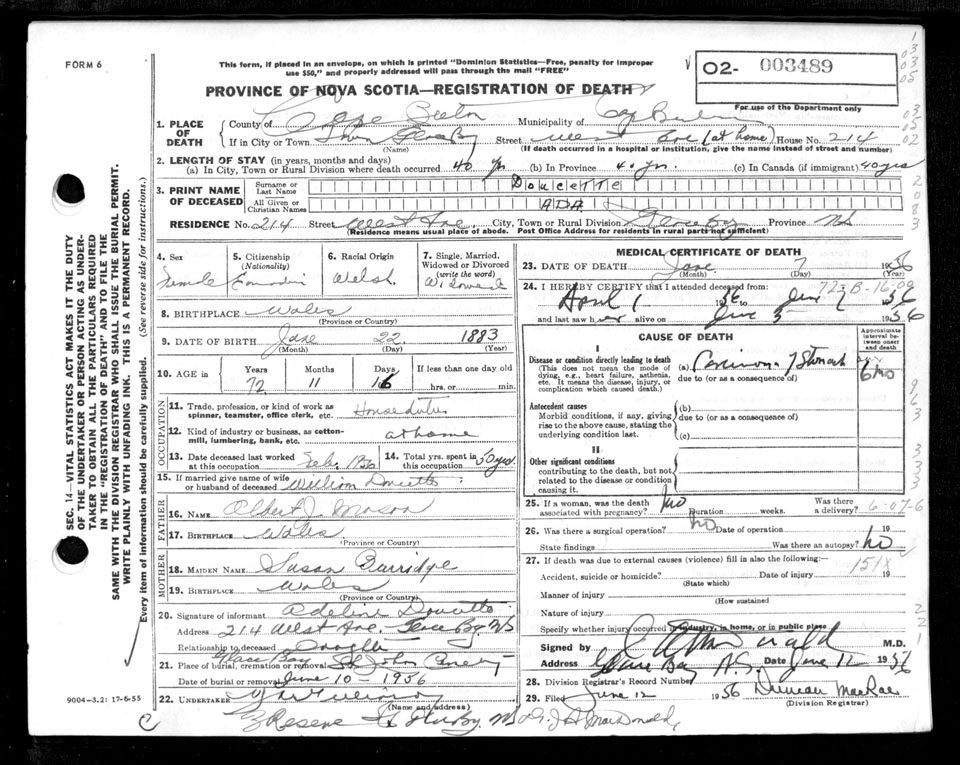 FORM 6
This form, if placed in an envelope, on which is printed "Dominion Statistics—Free, penalty for improper use $50," and properly addressed will pass through the mail "FREE"
02- 003489
For use of the Department only
PROVINCE OF NOVA SCOTIA—REGISTRATION OF DEATH
1. PLACE OF DEATH County of Cape Breton Municipality of Cape Breton
If in City or Town Glace Bay (Name) Street West Ave (at home) House No. 214
(If death occurred in a hospital or institution, give the name instead of street and number)
2. LENGTH OF STAY (in years, months and days)
(a) In City, Town or Rural Division where death occurred 40 yrs (b) In Province 40 yrs. (c) In Canada (if immigrant) 40 yrs
3. PRINT NAME OF DECEASED Surname or Last Name Doucette
All Given or Christian Names ADA
RESIDENCE No. 214 Street West Ave, City, Town or Rural Division Glace Bay Province NS
(Residence means usual place of abode. Post Office Address for residents in rural parts not sufficient)
4. Sex Female
5. Citizenship (Nationality) Canadian
6. Racial Origin Welsh
7. Single, Married, Widowed or Divorced (write the word) Widowed
8. BIRTHPLACE Wales (Province or Country)
9. DATE OF BIRTH June (Month) 22 (Day) 1883 (Year)
10. AGE in Years 72 Months 11 Days 16 If less than one day old hrs. or min.
OCCUPATION
11. Trade, profession, or kind of work as spinner, teamster, office clerk, etc. House duties
12. Kind of industry or business, as cotton-mill, lumbering, bank, etc. at home
13. Date deceased last worked at this occupation Feb. 1956
14. Total yrs. spent in this occupation 50 yrs.
15. If married give name of wife or husband of deceased William Doucette
FATHER
16. NAME Albert J. Mason
17. BIRTHPLACE Wales (Province or Country)
MOTHER
18. MAIDEN NAME Susan Burridge
19. BIRTHPLACE Wales (Province or Country)
20. Signature of informant Adeline Doucette
Address 214 West Ave. Glace Bay, NS
Relationship to deceased Daughter
21. Place of burial, cremation or removal Glace Bay St John Cemetery
Date of burial or removal June 10 1956
22. UNDERTAKER
(Name and address)
Reserve St Glace Bay, NS
MEDICAL CERTIFICATE OF DEATH
23. DATE OF DEATH June (Month) 7 (Day) 1956 (Year)
72 B-16-09
24. I HEREBY CERTIFY that I attended deceased from:
April 1 1956 to June 7 1956
and last saw her alive on June 5 1956
CAUSE OF DEATH
Approximate interval between onset and death
I
Disease or condition directly leading to death (This does not mean the mode of dying, e.g., heart failure, asthenia, etc. It means the disease, injury, or complication which caused death.)
(a) Carcinoma of Stomach 6 mo
due to (or as a consequence of)
Antecedent causes
Morbid conditions, if any, giving rise to the above cause, stating the underlying condition last.
(b)
due to (or as a consequence of)
(c)
II
Other significant conditions contributing to the death, but not related to the disease or condition causing it.
25. If a woman, was the death associated with pregnancy? No Duration weeks. Was there a delivery?
6-07-6
26. Was there a surgical operation? No Date of operation 19
State findings Was there an autopsy? No
27. If death was due to external causes (violence) fill in also the following: 151X
Accident, suicide or homicide? (State which) Date of injury 19
Manner of injury (How sustained)
Nature of injury
Specify whether injury occurred in industry, in home, or in public place
Signed by M.D.
Address Glace Bay N.S. Date June 12 1956
28. Division Registrar's Record Number
29. Filed June 12 1956 Duncan MacRae (Division Registrar)
Dr. J. A. MacDonald,
9004—3.2: 17-6-55
SEC. 14—VITAL STATISTICS ACT MAKES IT THE DUTY OF THE UNDERTAKER OR PERSON ACTING AS UNDERTAKER TO OBTAIN ALL THE PARTICULARS REQUIRED IN THE "REGISTRATION OF DEATH" AND TO FILE THE SAME WITH THE DIVISION REGISTRAR WHO SHALL ISSUE THE BURIAL PERMIT.
WRITE PLAINLY WITH UNFADING INK. THIS IS A PERMANENT RECORD.
Every item of information should be carefully supplied. (See reverse side for instructions.)